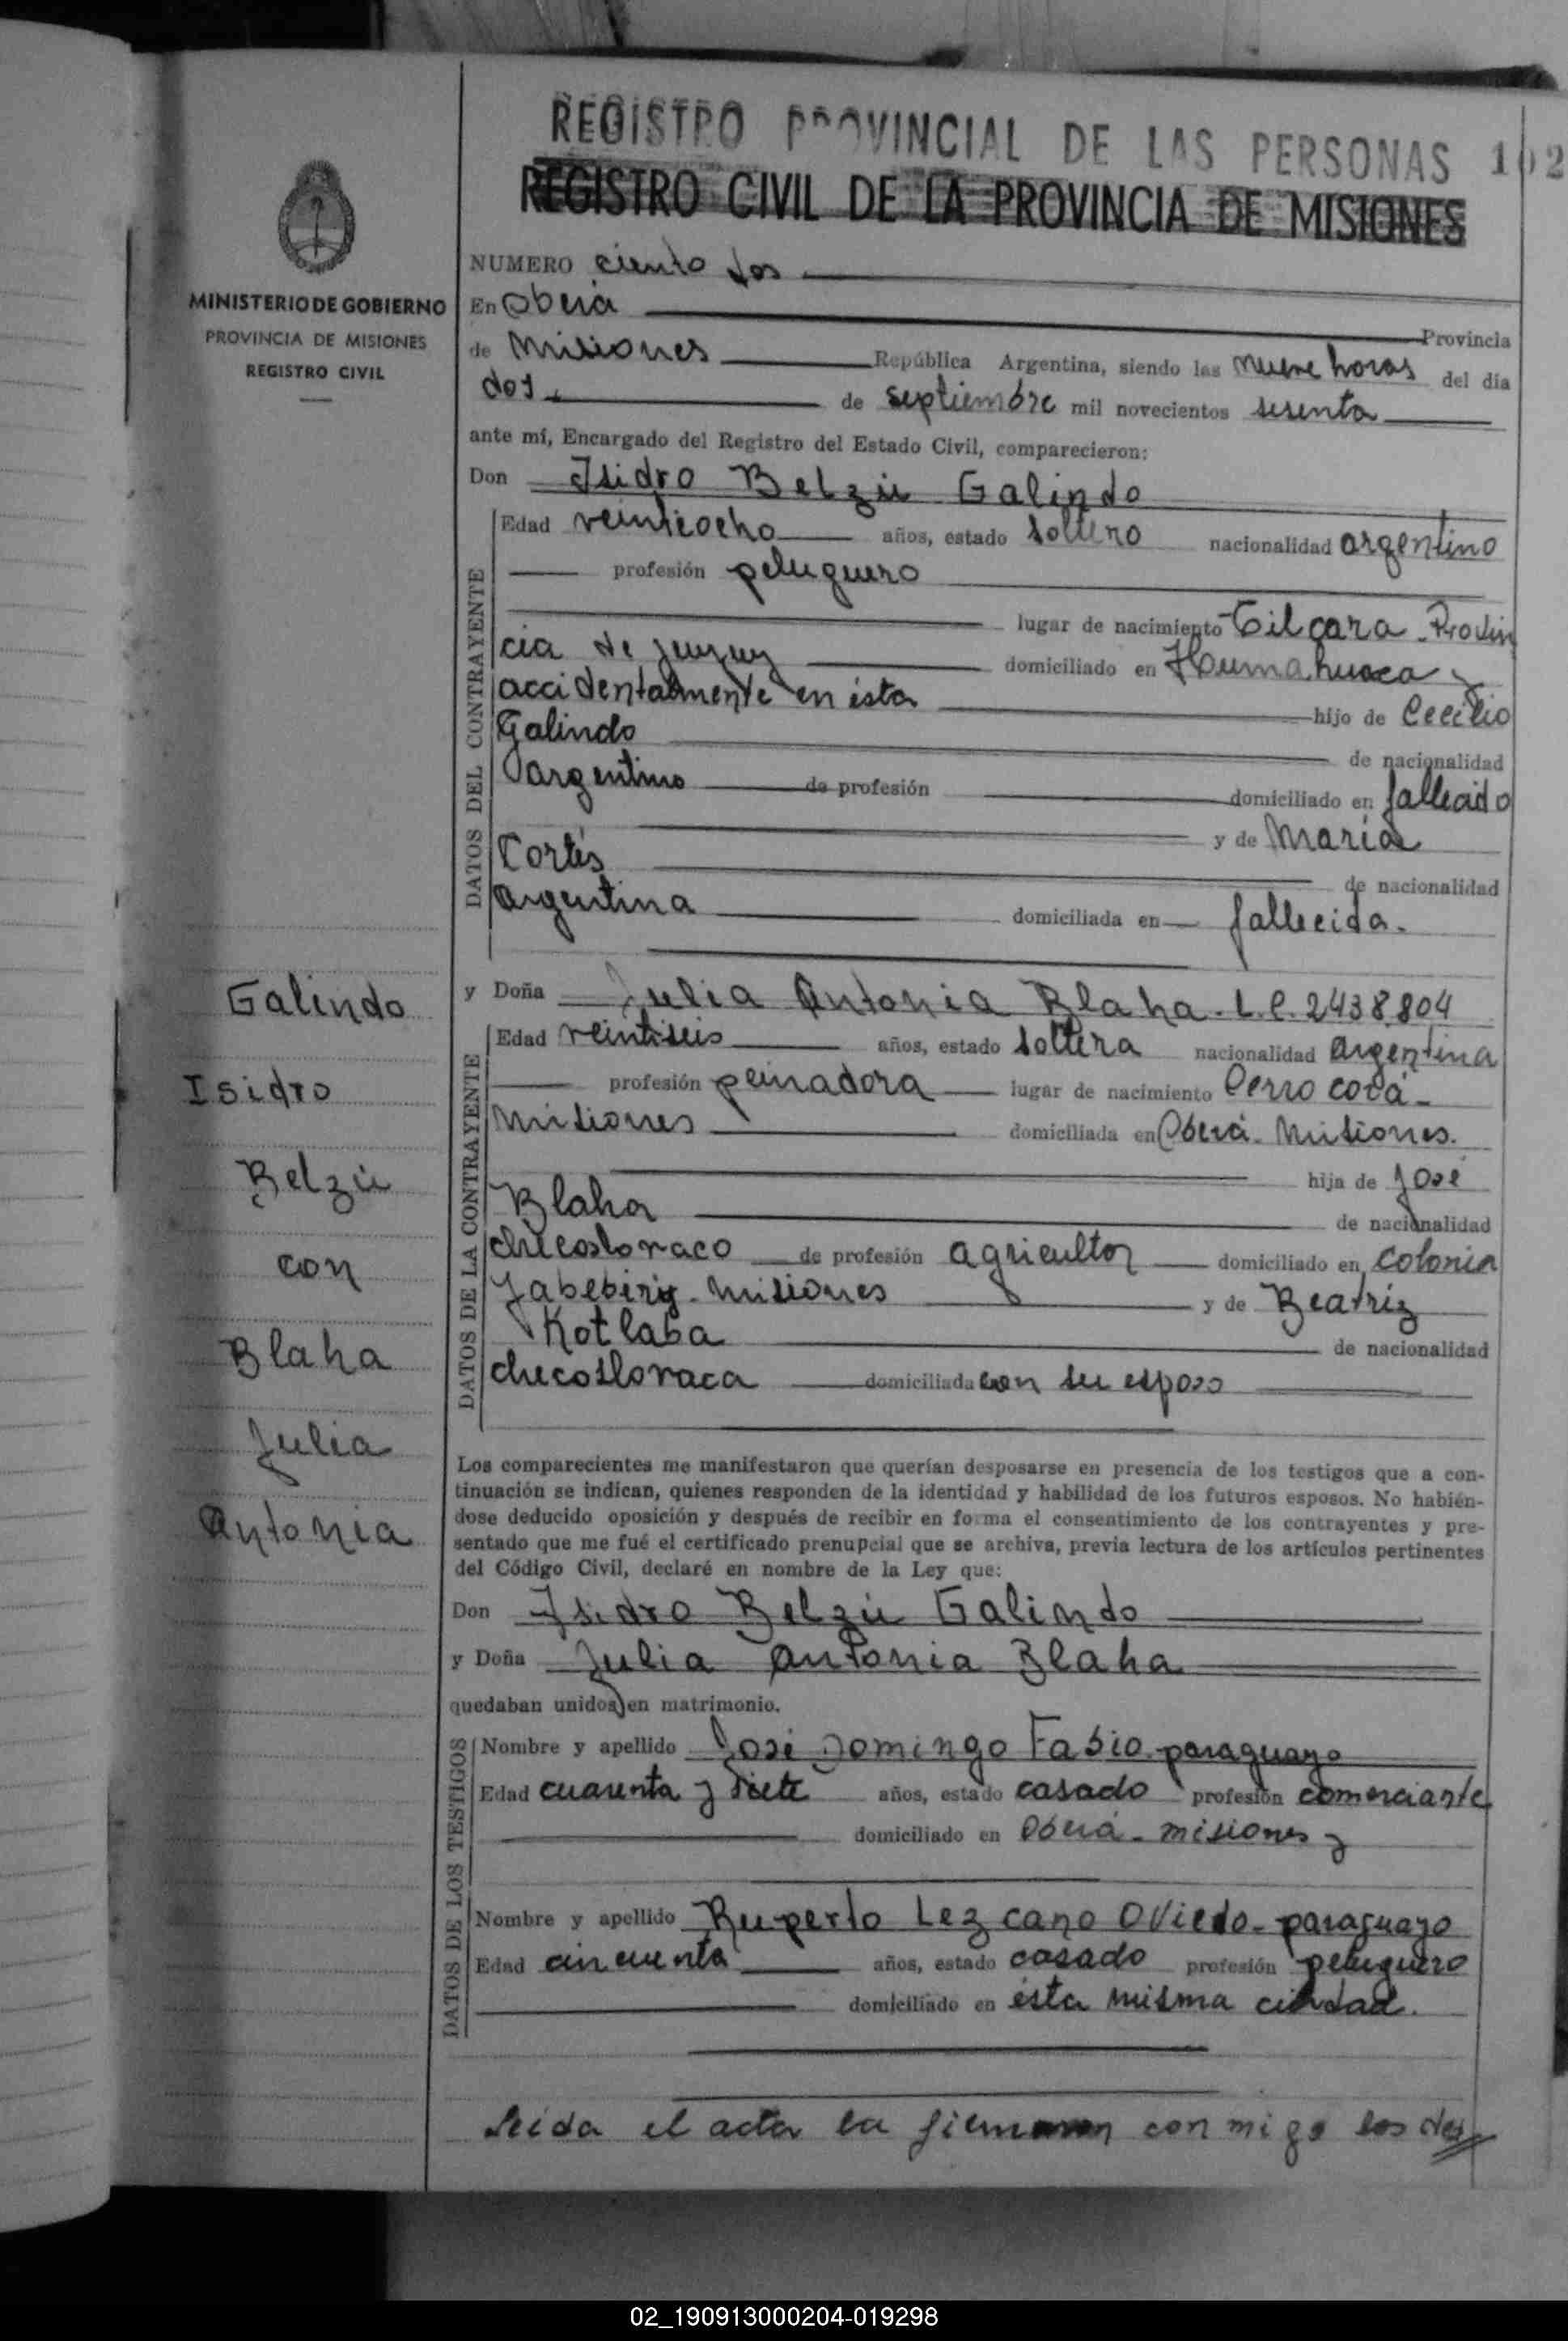 REGISTRO PROVINCIAL DE LAS PERSONAS 102
REGISTRO CIVIL DE LA PROVINCIA DE MISIONES
MINISTERIO DE GOBIERNO
PROVINCIA DE MISIONES
REGISTRO CIVIL
NUMERO ciento dos
En Oberá
Provincia
de Misiones República Argentina, siendo las nueve horas del día
dos. de septiembre mil novecientos sesenta
ante mí, Encargado del Registro del Estado Civil, comparecieron:
Don Isidro Belzú Galindo
DATOS DEL CONTRAYENTE
Edad veintiocho años, estado soltero nacionalidad argentino
profesión peluquero
lugar de nacimiento Tilcara - Provin
cia de Jujuy domiciliado en Humahuaca y
accidentalmente en ésta hijo de Cecilio
Galindo de nacionalidad
argentino de profesión domiciliado en fallecido
y de María
Cortés de nacionalidad
argentina domiciliada en fallecida.
y Doña Julia Antonia Blaha - L.C. 2438.804
DATOS DE LA CONTRAYENTE
Edad veintiseis años, estado soltera nacionalidad argentina
profesión peinadora lugar de nacimiento Cerro corá -
Misiones domiciliada en Oberá - Misiones.
hija de José
Blaha de nacionalidad
checoslovaco de profesión agricultor domiciliado en colonia
Yabebiry - Misiones y de Beatriz
Kotlaba de nacionalidad
checoslovaca domiciliada con su esposo
Galindo
Isidro
Belzú
con
Blaha
Julia
Antonia
Los comparecientes me manifestaron que querían desposarse en presencia de los testigos que a con-
tinuación se indican, quienes responden de la identidad y habilidad de los futuros esposos. No habién-
dose deducido oposición y después de recibir en forma el consentimiento de los contrayentes y pre-
sentado que me fué el certificado prenupcial que se archiva, previa lectura de los artículos pertinentes
del Código Civil, declaré en nombre de la Ley que:
Don Isidro Belzú Galindo
y Doña Julia Antonia Blaha
quedaban unidos en matrimonio.
DATOS DE LOS TESTIGOS
Nombre y apellido José Domingo Fabio - paraguayo
Edad cuarenta y siete años, estado casado profesión comerciante
domiciliado en Oberá - misiones y
Nombre y apellido Ruperto Lezcano Oviedo - paraguayo
Edad cincuenta años, estado casado profesión peluquero
domiciliado en ésta misma ciudad.
Leída el acta la firmaron conmigo los des
02_190913000204-019298